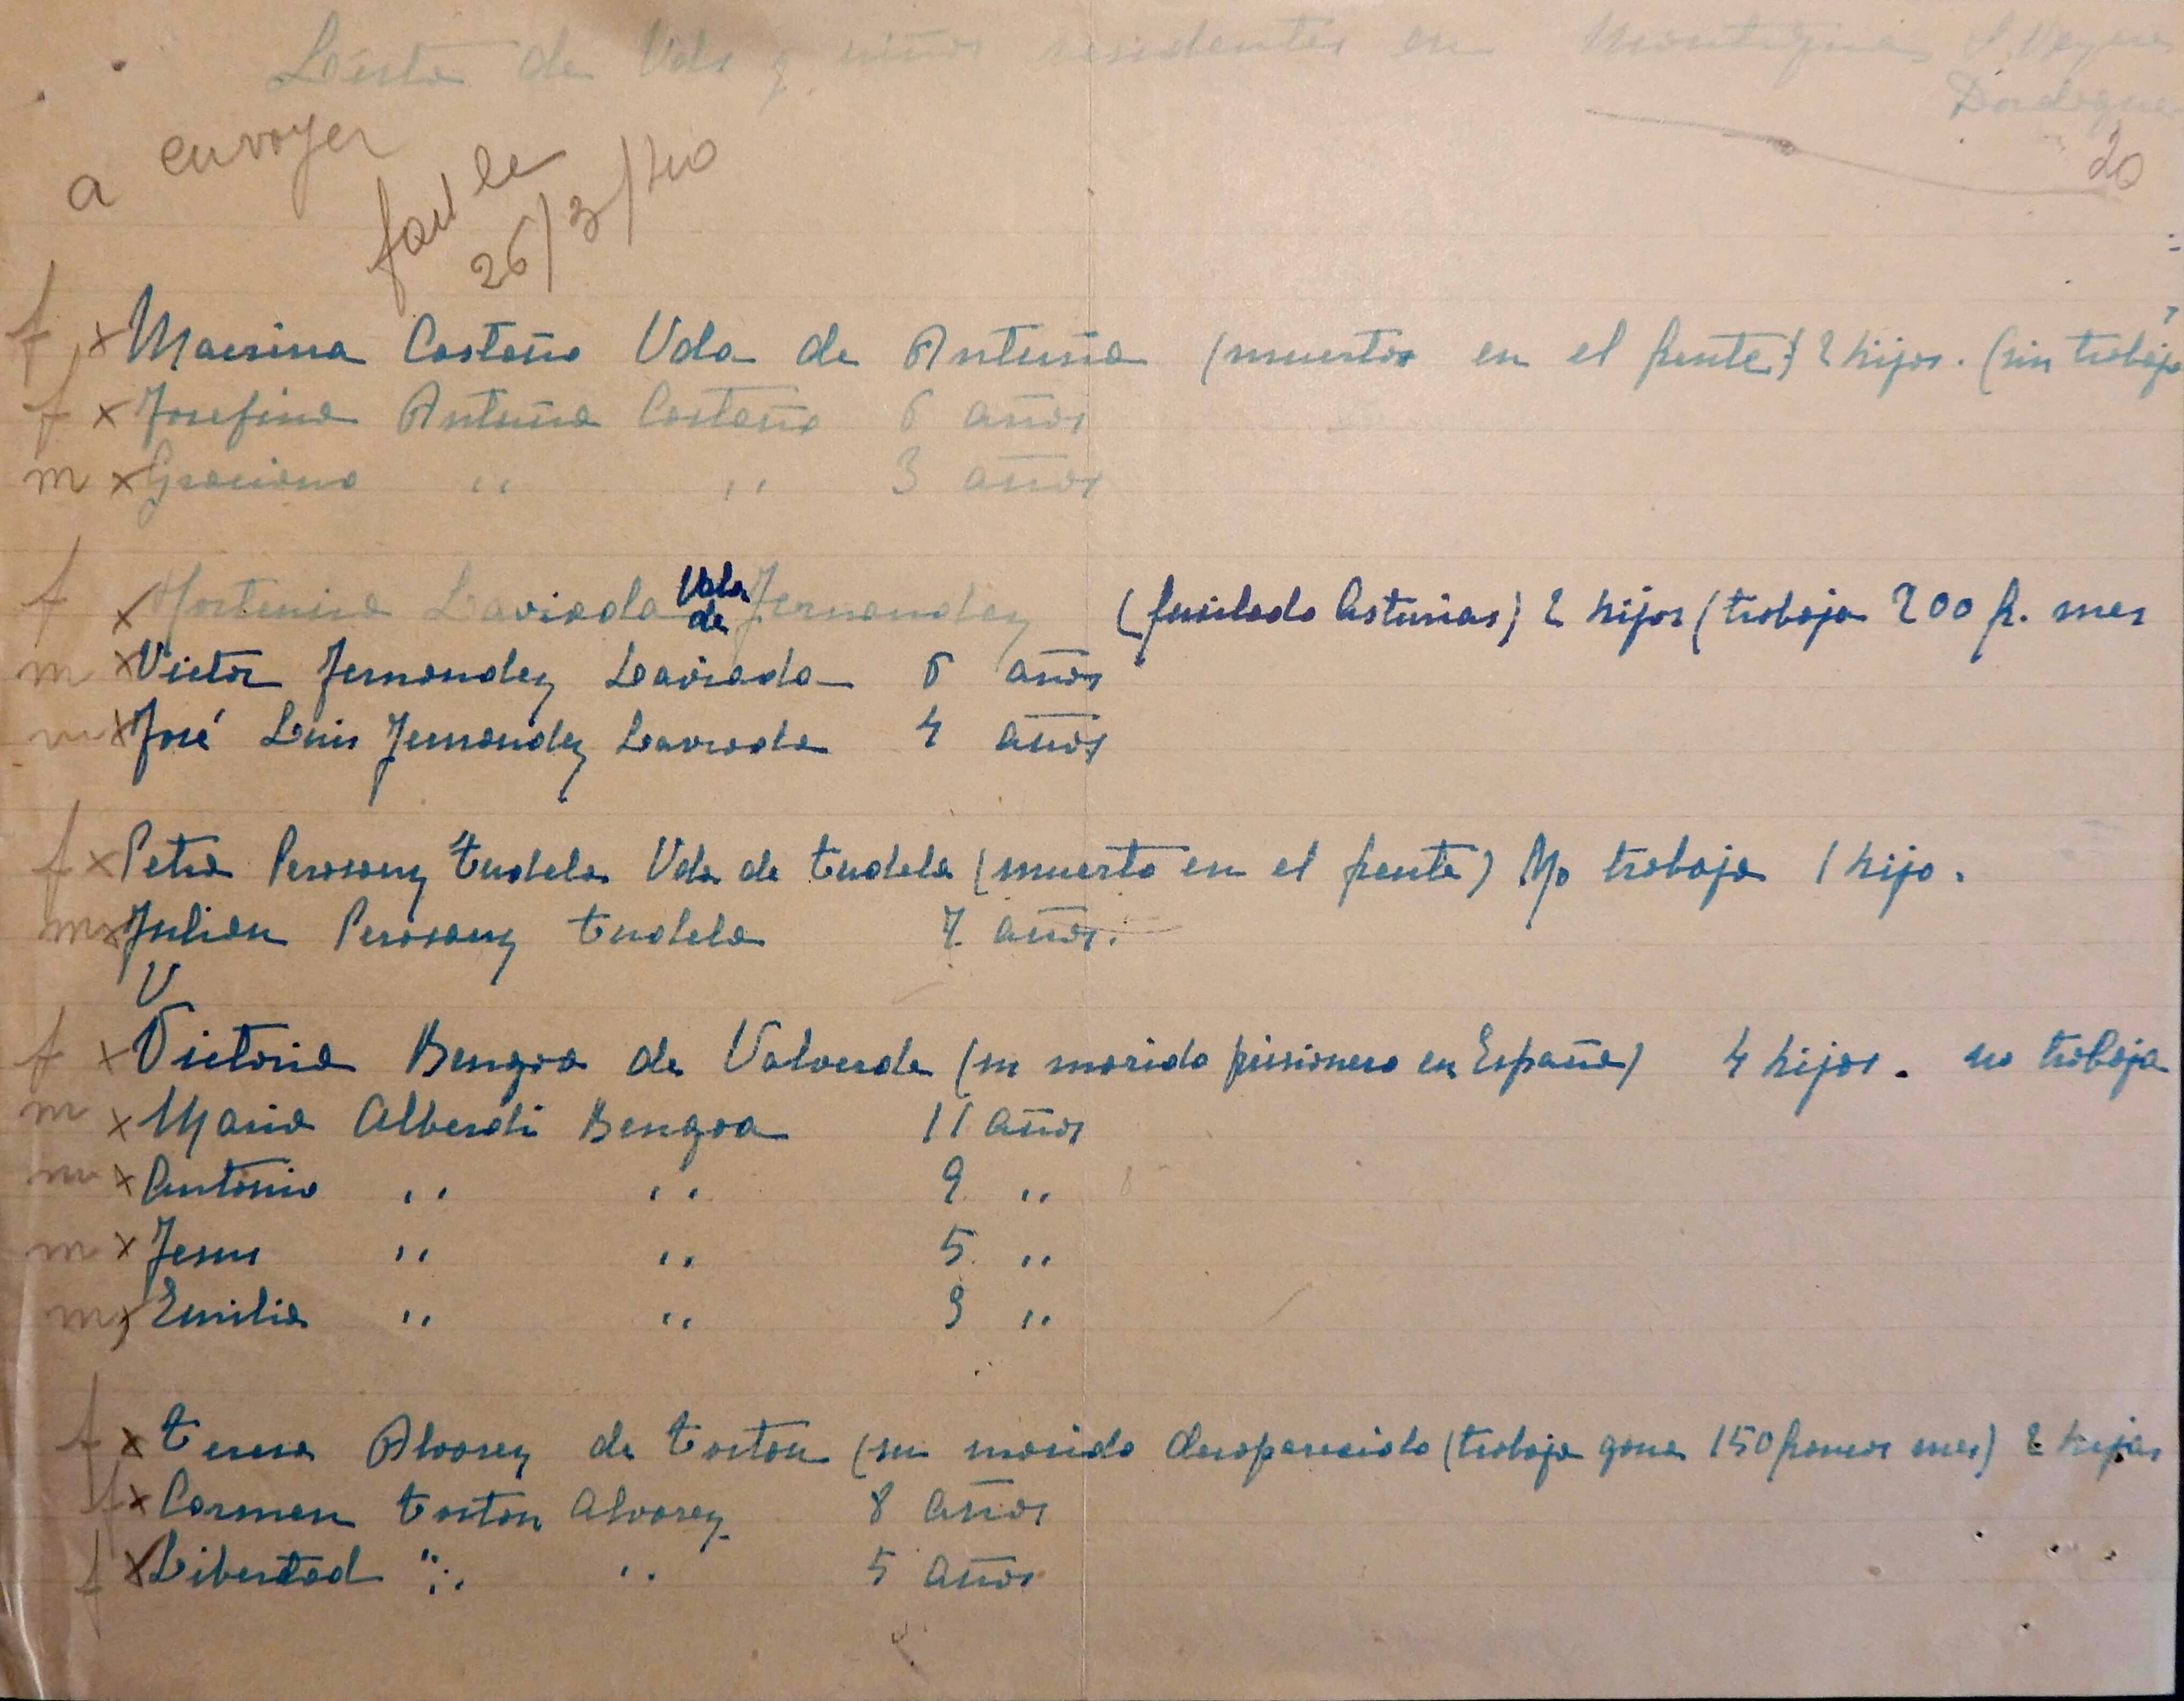 Lista de Vds y niños residentes en Montignac S. Vezere
Dordogne
a envoyer
fait le
26/3/40
20
f x Macrina Castaño Vda de Antuña (muertos en el frente) 2 hijos. (sin trabajo
f x Josefina Antuña Castaño 6 años
m x Graciano " " 3 años
f x Hortensia Laviada Vda de Fernandez (fusilado Asturias) 2 hijos (trabaja 200 fr. mes
m x Victor Fernandez Laviada 6 años
m x José Luis Fernandez Laviada 4 años
f x Petra Perosanz tudela Vda de tudela (muerto en el frente) No trabaja 1 hijo.
m x Julian Perosanz tudela 7 años.
V
f x Victoria Bengoa de Valverde (su marido prisionero en España) 4 hijos. no trabaja
m x Mario Alberdi Bengoa 11 años
m x Antonio " " 9 "
m x Jesus " " 5 "
m x Emilio " " 3 "
f x teresa Alvarez de toston (su marido desaparecido (trabaja gana 150 francos mes) 2 hijas
f x Carmen toston Alvarez 8 años
f x Libertad " " 5 años